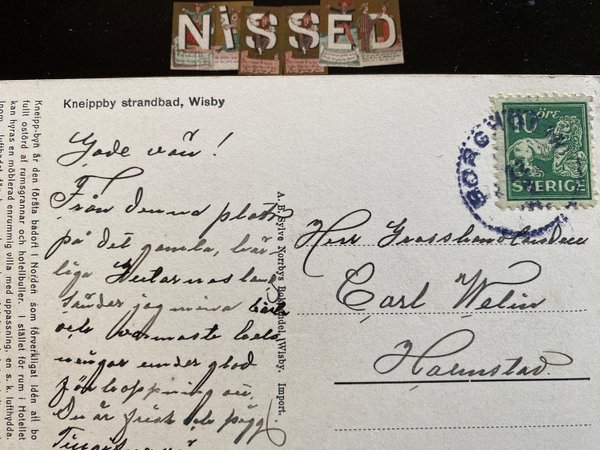 NISSED
Kneippby strandbad, Wisby
Gode vän!
Från denna plats
på det gamla, här-
liga Gutarnas land
sänder jag mina
och varmaste hels-
ningar under glad
förhoppning om
Du är frisk och pigg
Herr Grosshandlanden
Carl Walin
Halmstad
10 ÖRE
SVERIGE
BORGHOLM
A. B. Sylve Norrbys Bokhandel, Wisby. Import.
Kneipp-byn är den första badort i Norden som förverkligat idén att bo
fullt ostörd af rumsgrannar och hotellbuller. I stället för rum i Hotellet
kan hyras en möblerad enrummig villa med uppassning, en s. k. lufthydda.